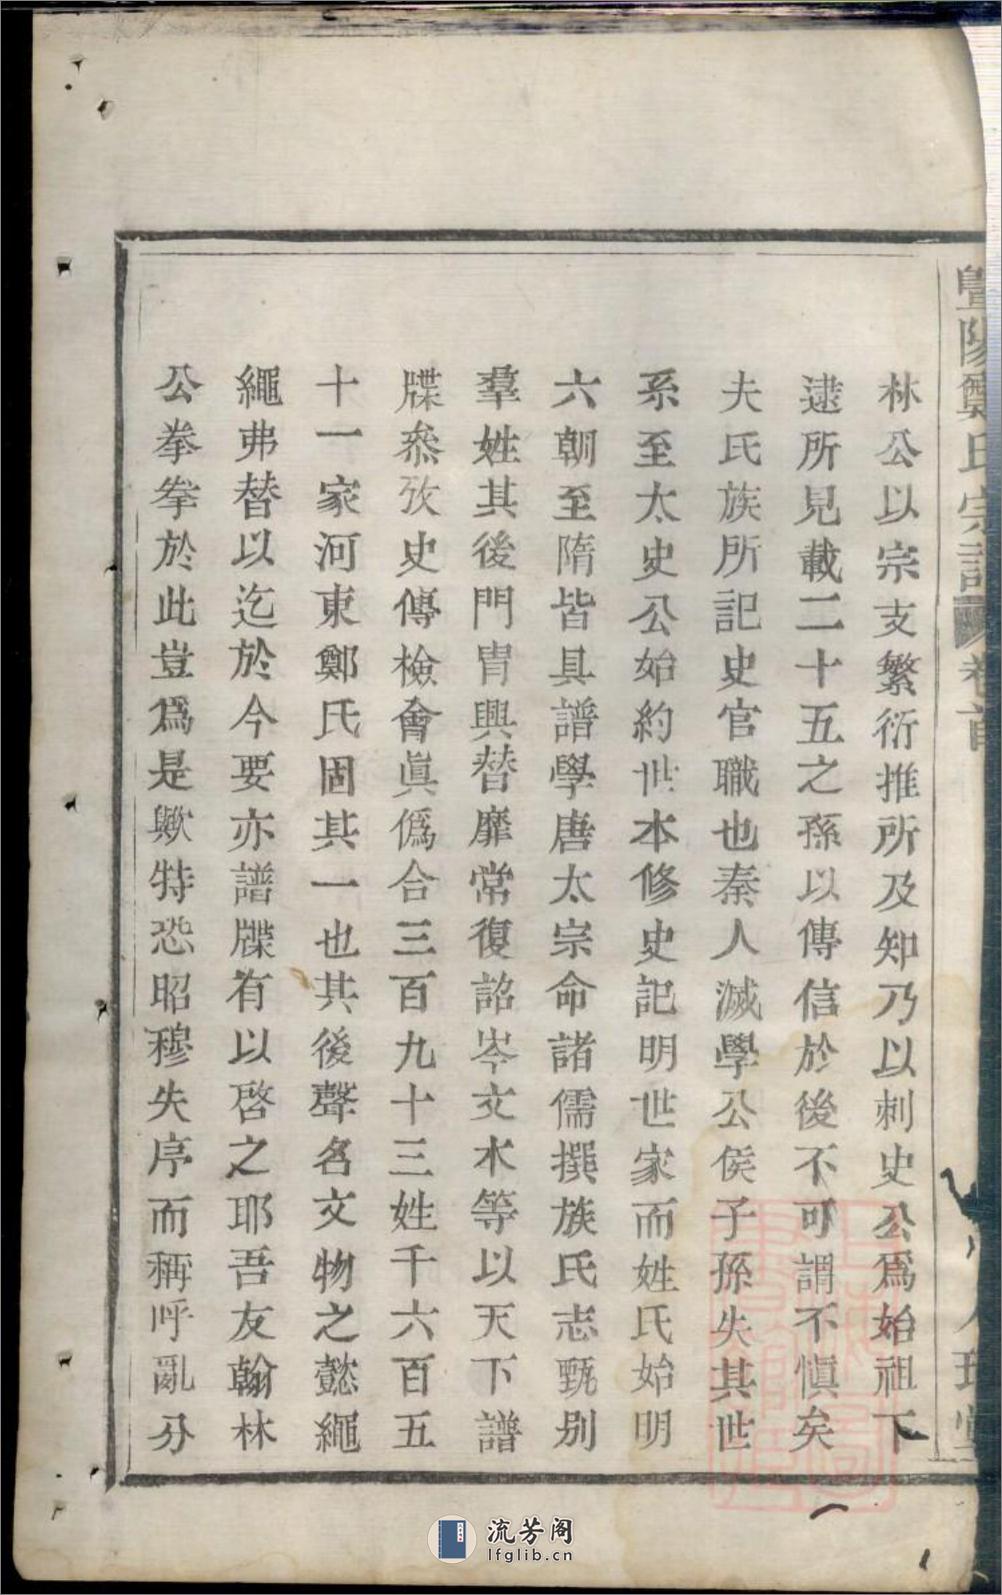 暨陽鄭氏宗譜 卷首
林公以宗支繁衍推所及知乃以刺史公爲始祖下
逮所見載二十五之孫以傳信於後不可謂不慎矣
夫氏族所記史官職也秦人滅學公侯子孫失其世
系至太史公始約世本修史記明世家而姓氏始明
六朝至隋皆具譜學唐太宗命諸儒撰族氏志甄别
羣姓其後門胄興替靡常復詔岑文本等以天下譜
牒叅攷史傳檢會眞僞合三百九十三姓千六百五
十一家河東鄭氏固其一也其後聲名文物之懿繩
繩弗替以迄於今要亦譜牒有以啓之耶吾友翰林
公拳拳於此豈爲是歟特恐昭穆失序而稱呼亂分
流芳阁
lfglib.cn